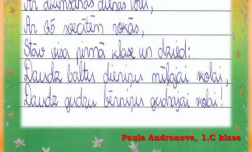 Ar dzimšanas dienas torti,
Ar 65 svecītēm rokās,
Stāv visa pirmā klase un dzied:
Daudz baltu dieniņu mīļajai skolai,
Daudz gudru bērniņu gudrajai skolai!
Paula Andronova, 1.C klase